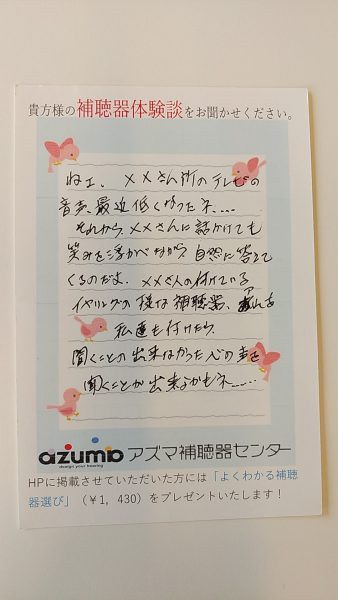 貴方様の補聴器体験談をお聞かせください。
ねェ、××さん所のテレビの
音声、最近低くなったネ、……
それから、××さんに話かけても
笑みを浮かべながら自然に答えて
くるのだよ、××さんの付けている
イヤリングの様な補聴器、
私達も付けたら
聞くことの出来なかった心の声を
聞くことが出来るかもネ……
azumo アズマ補聴器センター
design your hearing
HPに掲載させていただいた方には「よくわかる補聴
器選び」（￥1, 430）をプレゼントいたします！